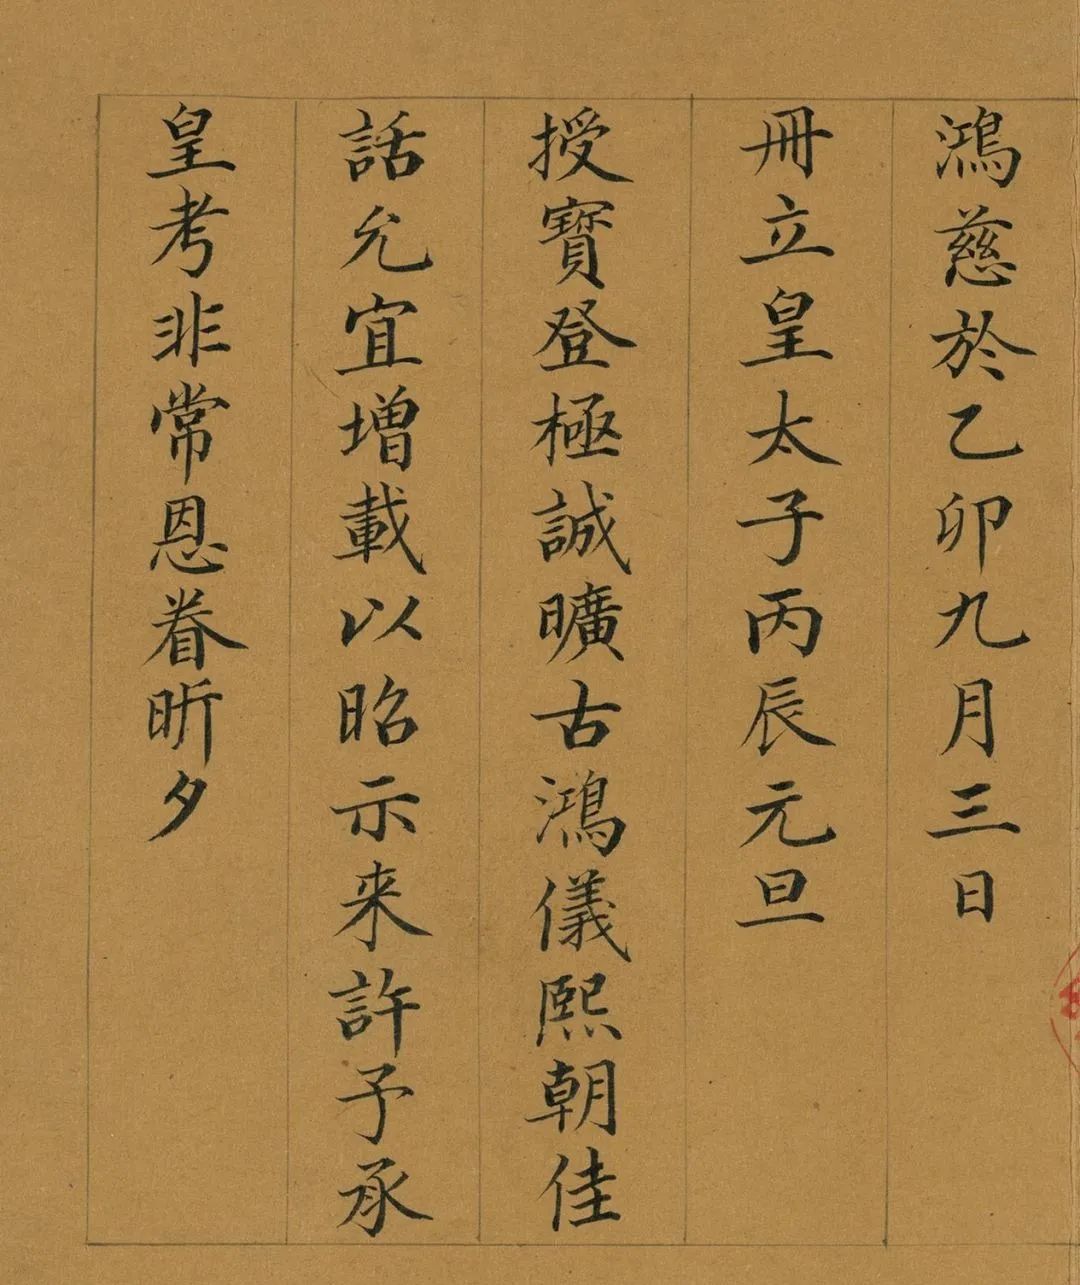 鴻慈於乙卯九月三日
冊立皇太子丙辰元旦
授寶登極誠曠古鴻儀熙朝佳
話允宜增載以昭示来許予承
皇考非常恩眷昕夕